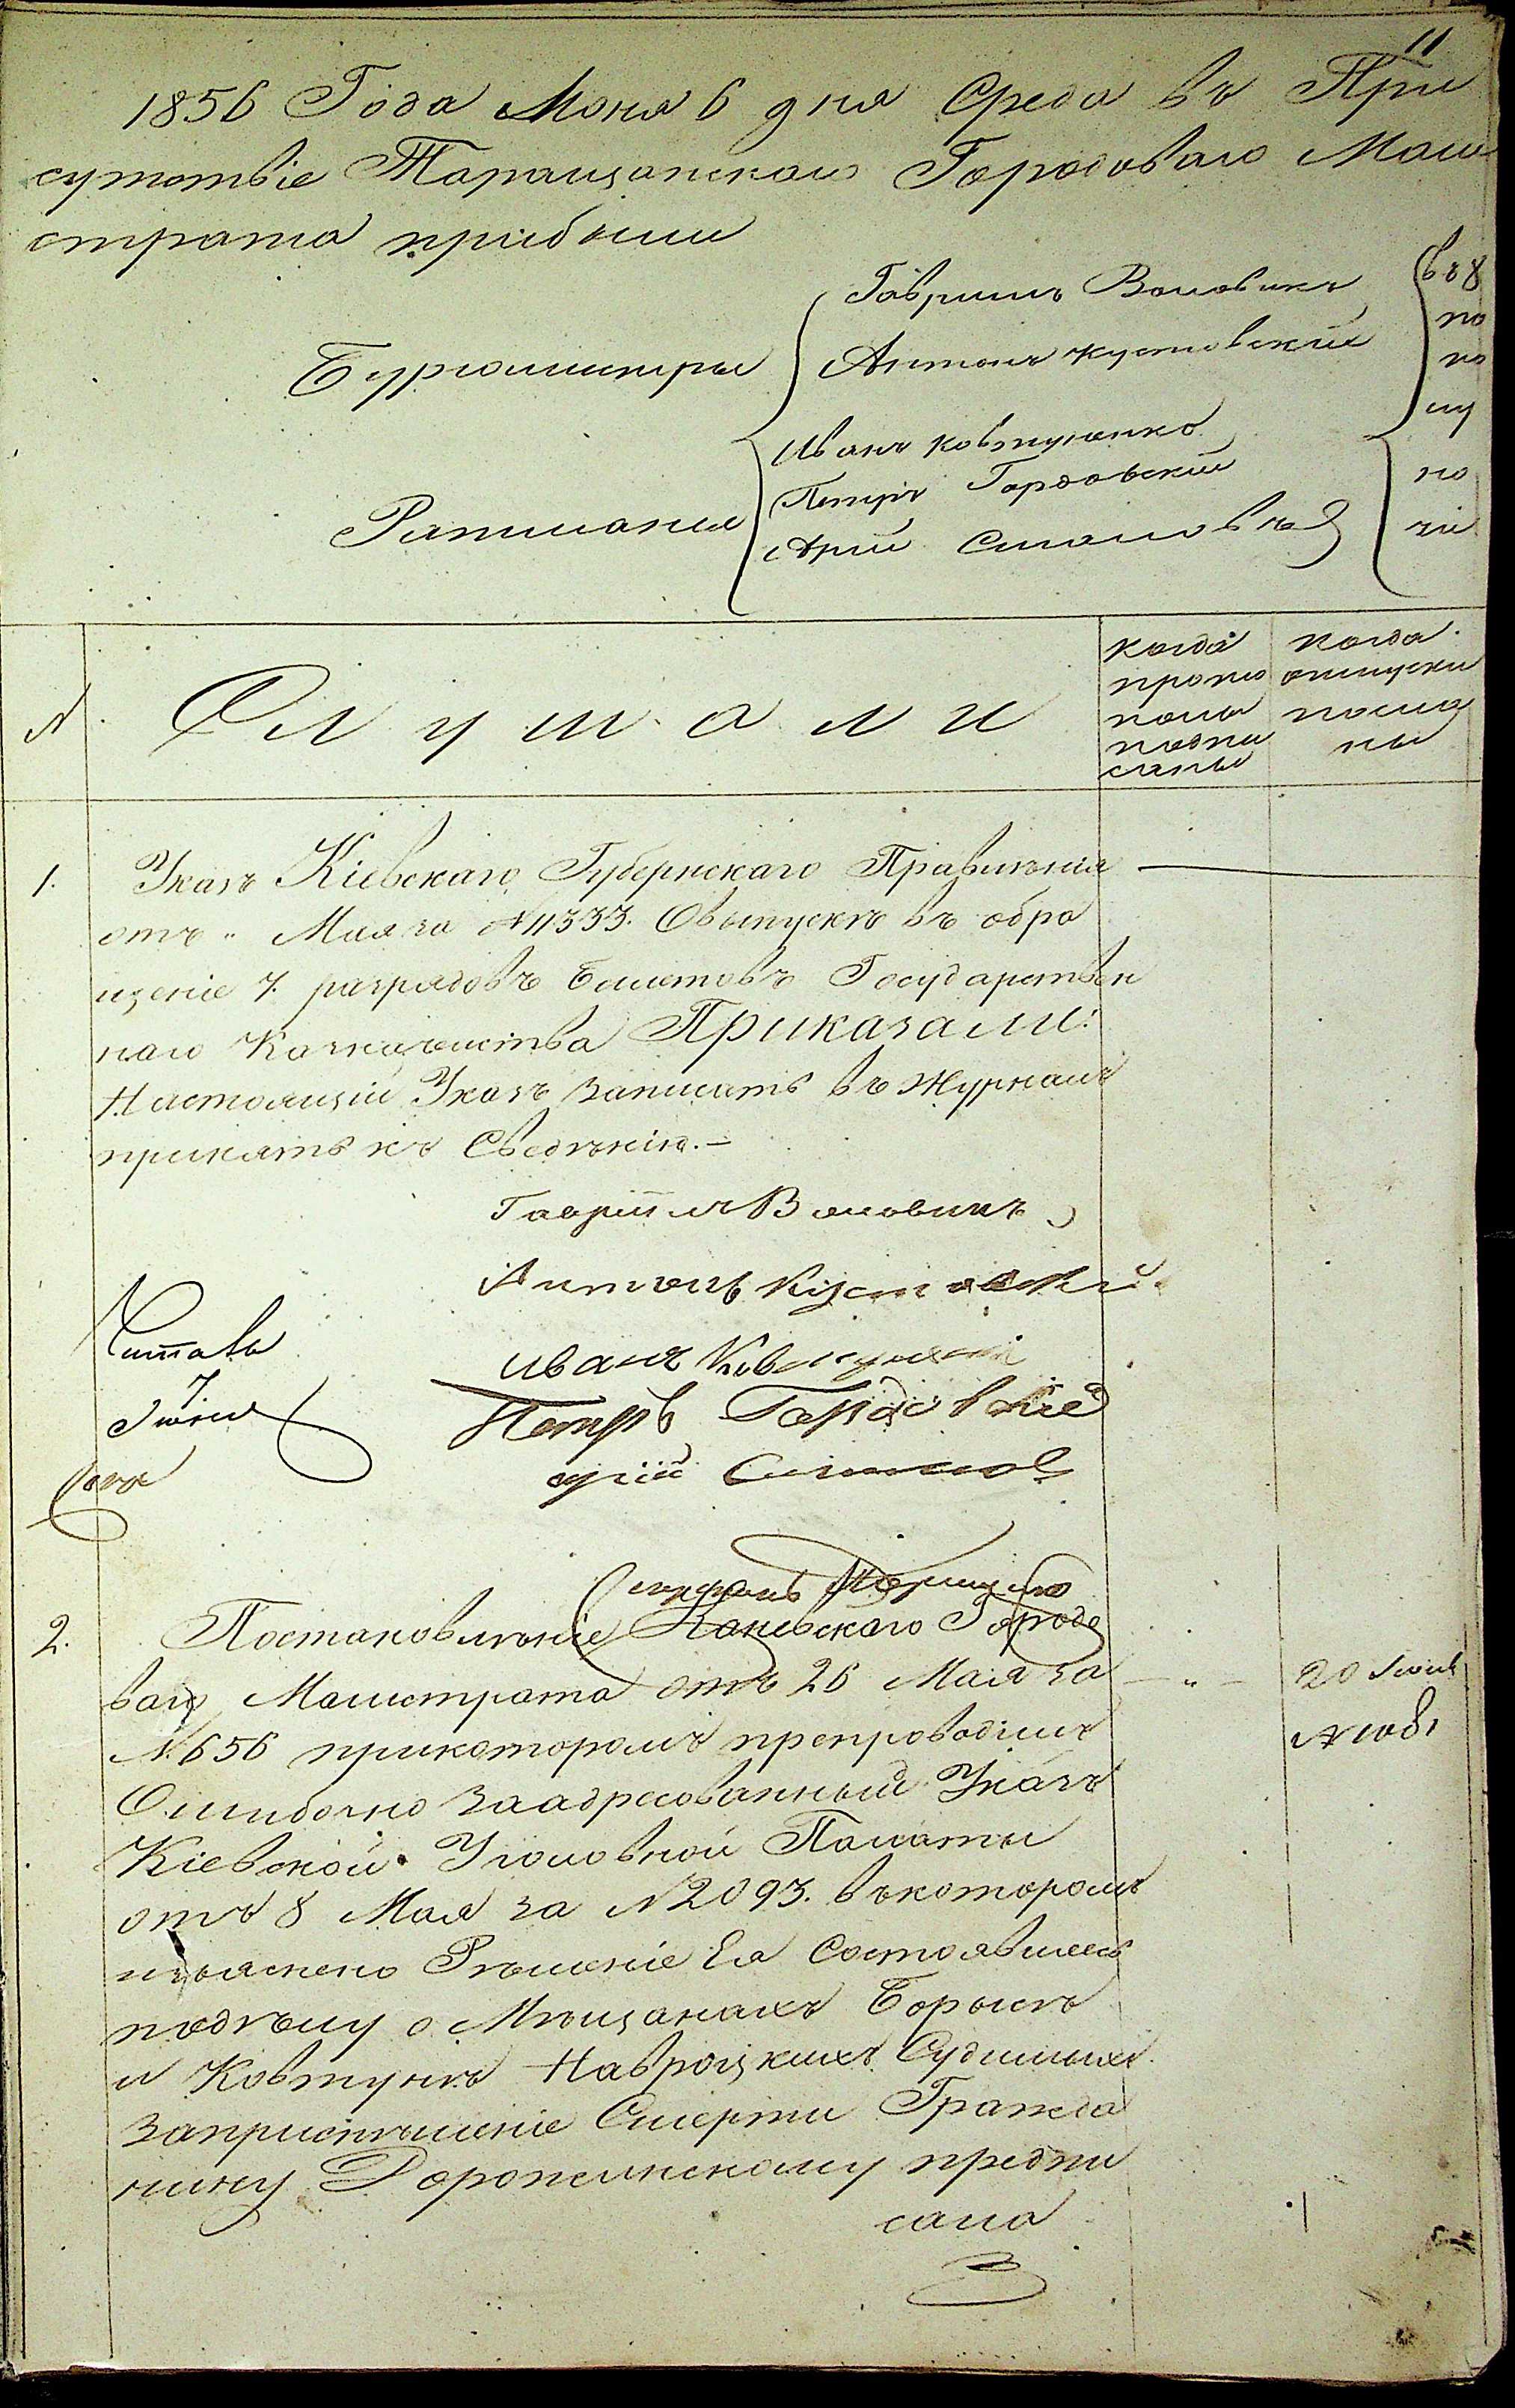 11
1856 Года Июня 6 дня Среда въ При
сутствіе Таращанскаго Городоваго Маги
страта прибыли
Бургомистры
Гавриилъ Воловикъ
Антонъ Кустовскій
въ 8
по
по
лу
Ратманы
Иванъ Ковтуненко
Петръ Гордовскій
по
чи
№
Слушали
когда
прото
колы
подпи
саны
когда
отпуски
посла
ны
1.
Указъ Кіевскаго Губернскаго Правленія
отъ „ Мая за № 11333. О выпускѣ въ обра
щеніе 7. разрядовъ Билетовъ Государствен
наго Казначейства Приказали:
Настоящій Указъ записать въ Журналъ
принять къ Сведѣнію.—
Гавриилъ Воловикъ
Антонъ Кустовскій
Читавъ
Иванъ
7
Іюня
Петръ Гордовскій
Секретарь
2.
Постановлѣніе Каневскаго Городо
ваго Магистрата отъ 26 Мая за
№ 656 прикоторомъ препроводилъ
Ошибочно Заадресованный Указъ
Кіевской Уголовной Палаты
отъ 8 Мая за № 2093. въкоторомъ
изъяснено Рѣшеніе Ея Состоявшееся
подѣлу о Мѣщанахъ Борисѣ
и Ковтунѣ Навроцкихъ Судимыхъ
Запричиненіе Смерти Гражда
нину Дорожинскому предпи
сала
20 Іюня